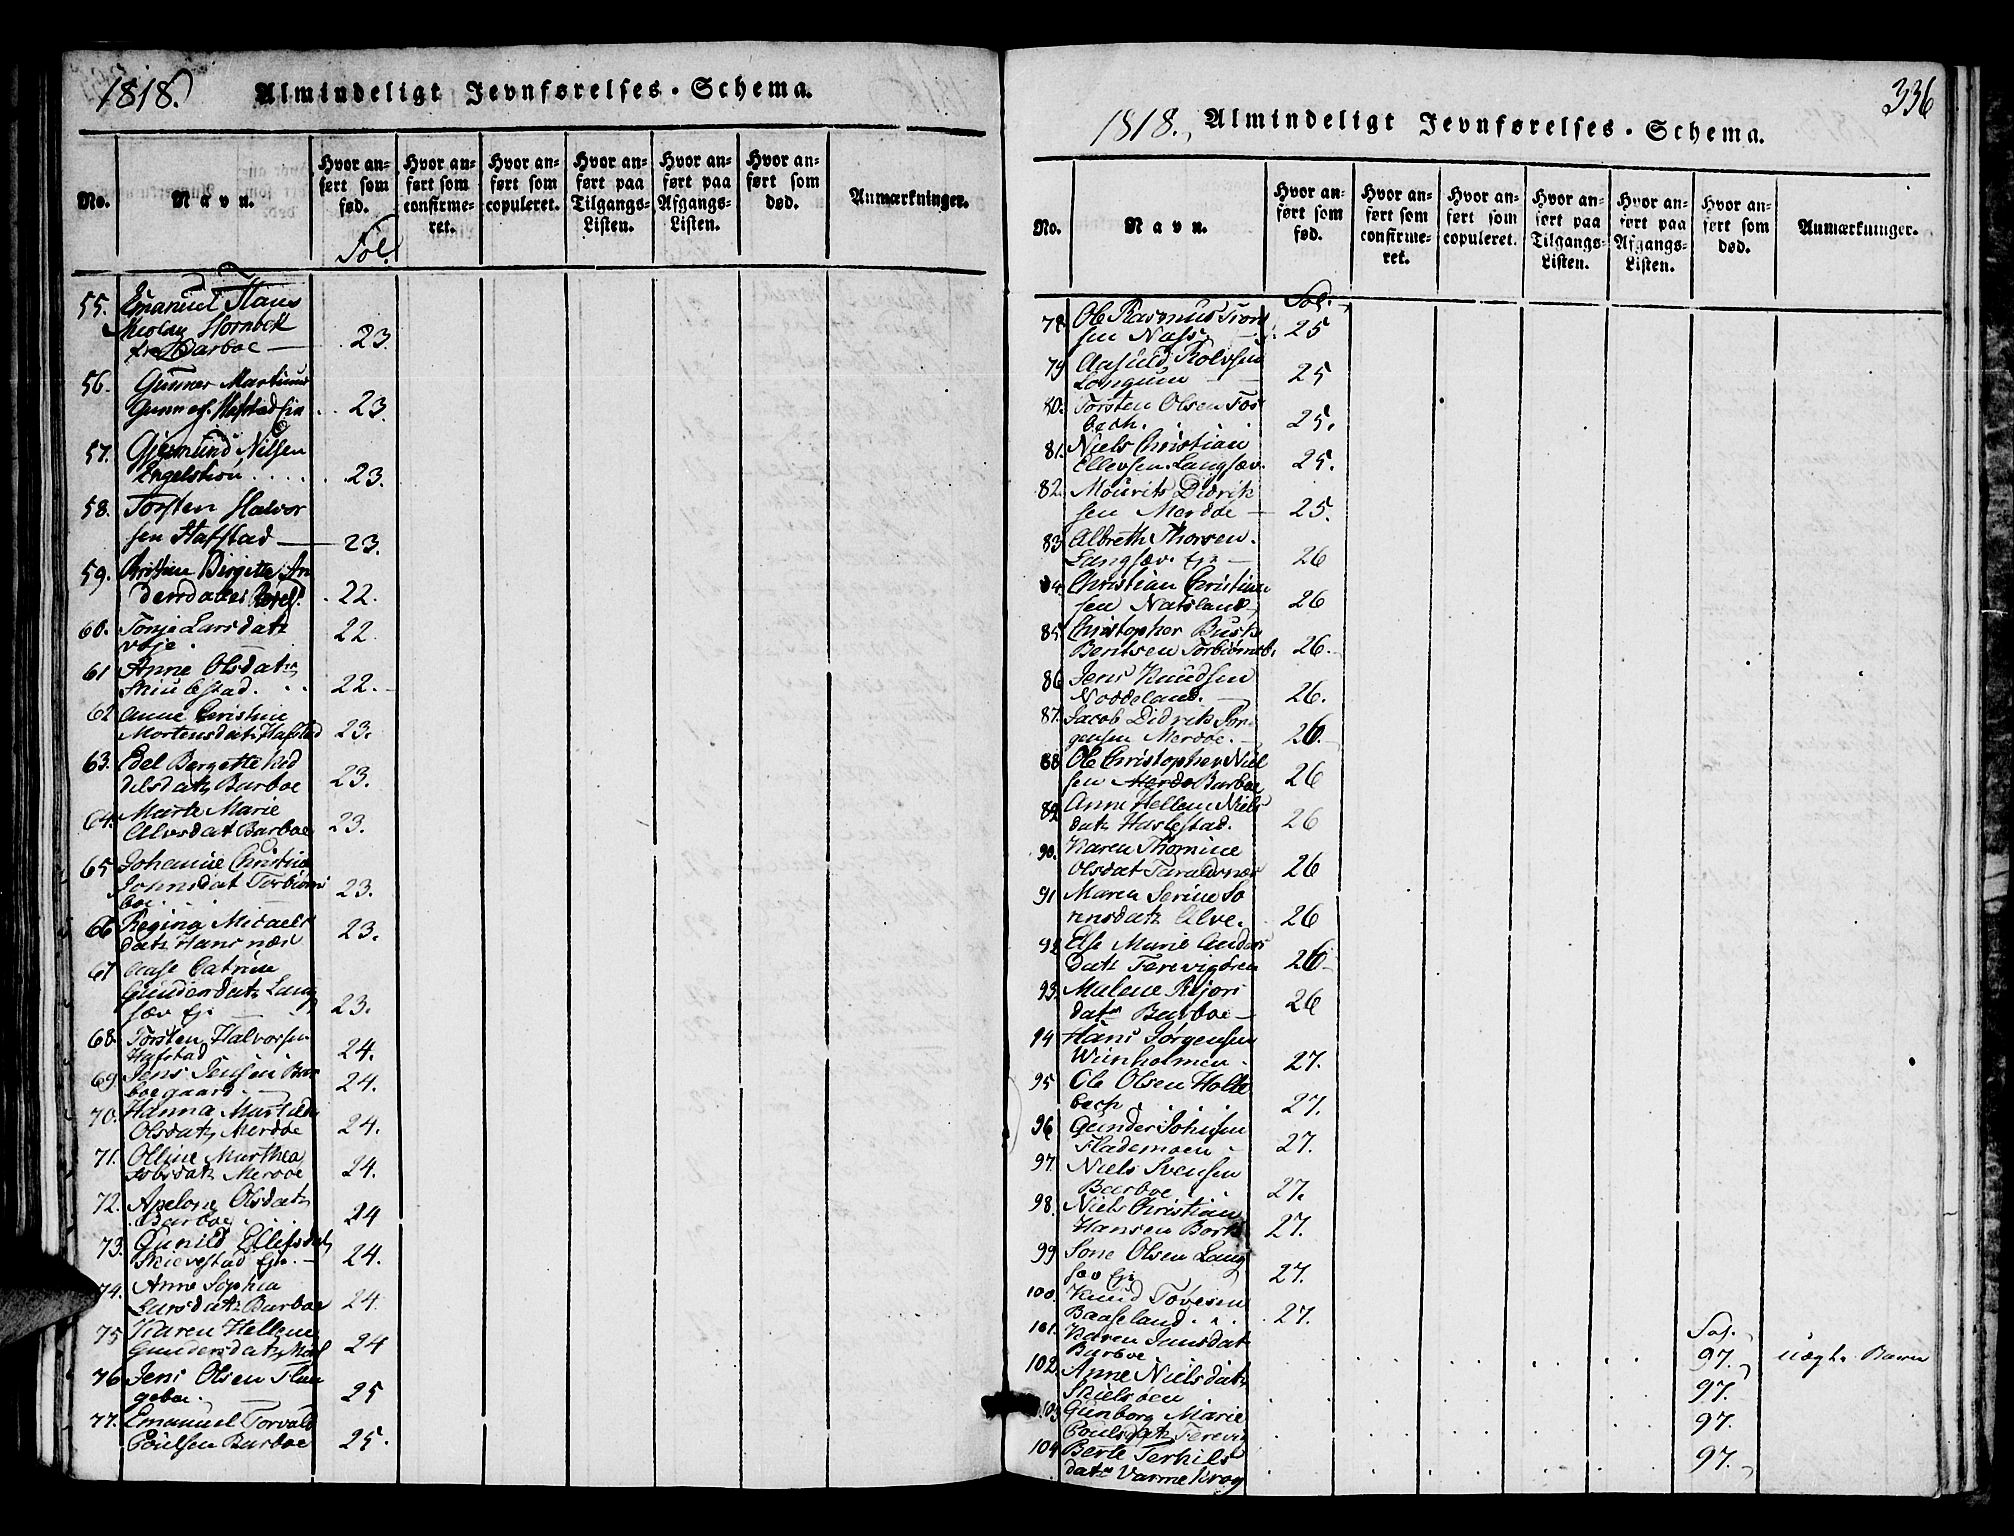 1818. Almindeligt Jevnførelses-Schema.
No. Navn. Hvor anført som fød. Hvor anført som confirmeret. Hvor anført som copuleret. Hvor anført paa Tilgangs-Listen. Hvor anført paa Afgangs-Listen. Hvor anført som død. Anmærkninger.
Fol.
55. Emanuel Hans
Nicolay Hornbek
fra Barboe 23.
56. Gunner Martinus
Hafstad 23.
57. Gjermund Nilsen
Engelstion 23.
58. Torsten Halvor
sen Hafstad 23.
59. Birgitte An
22.
60. Tonje Larsdatr
22
61 Anne Olsdatr
Skiulestad. 22.
62 Anne Christine
Mortensdatr Hafstad 23.
63. Edel Bergette
delsdatr Barboe 23.
64. Marte Marie
Alvsdat Barboe 23.
65 Johanne Christine
Johnsdat Torbiørns
boe 23.
66 Regina Micaels
datr Hansnæs 23.
67 Aase Catrine
Gundersdatr Lang
sæv Ej. 23.
68. Torsten Halvorsen
Hafstad 24.
69. Jens Jensen Bar
boegaard 24.
70. Hanna
Olsdatr Merdøe 24.
71. Olline Marthea
Jobsdatr Merdøe 24.
72. Apelone Olsdatr
Barboe 24
73. Gunild Ellefsdatr
Skievestad Ej. 24.
74. Anne Sophia
Larsdatr Barboe 24.
75 Karen Hellene
Gundersdatr 24
76 Jens Olsen Hau
geboe. 25
77. Emanuel Torvald
Poulsen Barboe 25.
336
1818. Almindeligt Jevnførelses-Schema.
No. Navn. Hvor anført som fød. Hvor anført som confirmeret. Hvor anført som copuleret. Hvor anført paa Tilgangs-Listen. Hvor anført paa Afgangs-Listen. Hvor anført som død. Anmærkninger.
Fol.
78 Ole Rasmus
sen Næss 25
79 Aasuld Rolvsen
Longum 25
80. Torsten Olsen Fos
bech. 25.
81. Niels Christian
Ellevsen Langsæv. 25.
82. Mourits Didrik
sen Merdøe 25.
83 Albreth Thorsen.
Langsæv. Ej. 26
84 Christian Christian
sen Natsland 26
85. Christopher Busk
Bentsen Torbiørnsb. 26.
86 Jens Knudsen
Noddeland. 26.
87. Jacob Didrik Jør
gensen Merdøe. 26.
88 Ole Christopher Niel
sen Merdø Barboe 26
89 Anne Hellene Niels
datr Harlestad. 26
90. Karen Thomine
Olsdat Taraldsnæs 26
91 Maren Serine So
rensdatr Alve. 26
92 Else Marie Anders
datr Ferevigsren 26
93. Malene Rejers
datr Barboe 26
94 Hans Jørgensen
Wiinholmen 27.
95 Ole Olsen Holte
bech 27.
96 Gunder Johnsen
Flademoen 27.
97. Niels Svensen
Barboe 27.
98. Niels Christian
Hansen 27.
99 Sone Olsen Lang
sæv Ej. 27.
100. Knud Tovesen
Baaseland. 27.
101. Karen Jansdatr Fol.
Barboe 97. uægte Barn
102. Anne Nielsdatr
Skielsøen 97.
103 Gunborg Marie
Poulsdatr Ferevig 97.
104 Berte Terkils
datr Varmekrog 97.